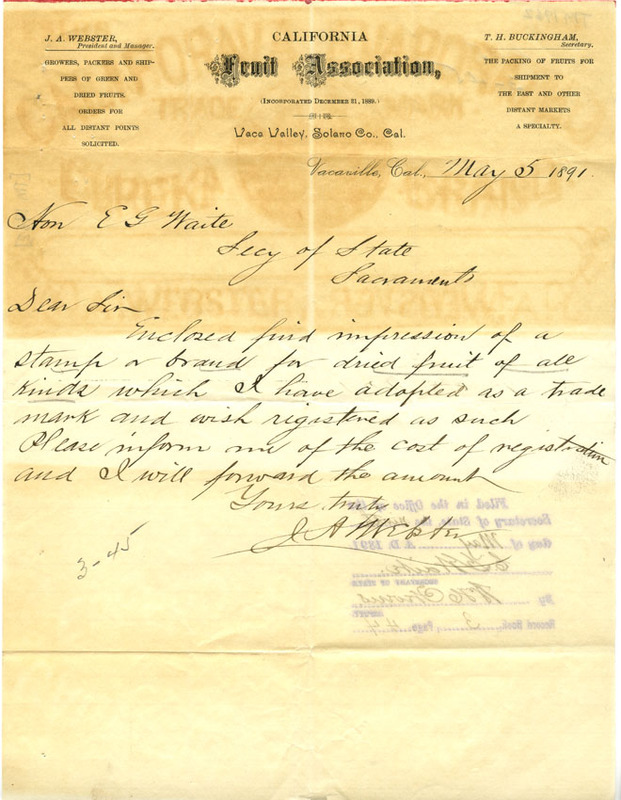 J. A. WEBSTER,
President and Manager.
GROWERS, PACKERS AND SHIP-
PERS OF GREEN AND
DRIED FRUITS.
ORDERS FOR
ALL DISTANT POINTS
SOLICITED.
CALIFORNIA
Fruit Association,
(INCORPORATED DECEMBER 21, 1889.)
Vaca Valley, Solano Co., Cal.
T. H. BUCKINGHAM,
Secretary.
THE PACKING OF FRUITS FOR
SHIPMENT TO
THE EAST AND OTHER
DISTANT MARKETS
A SPECIALTY.
Vacaville, Cal., May 5 1891.
Hon E G Waite
Secy of State
Sacramento
Dear Sir
Enclosed find impression of a
stamp or brand for dried fruit of all
kinds which I have adopted as a trade
mark and wish registered as such
Please inform me of the cost of registration
and I will forward the amount
Yours truly
J A Webster
Filed in the Office of the
Secretary of State, the
day of May A. D. 1891
SECRETARY OF STATE
By
DEPUTY
Record Book 3 Page 44
3-45